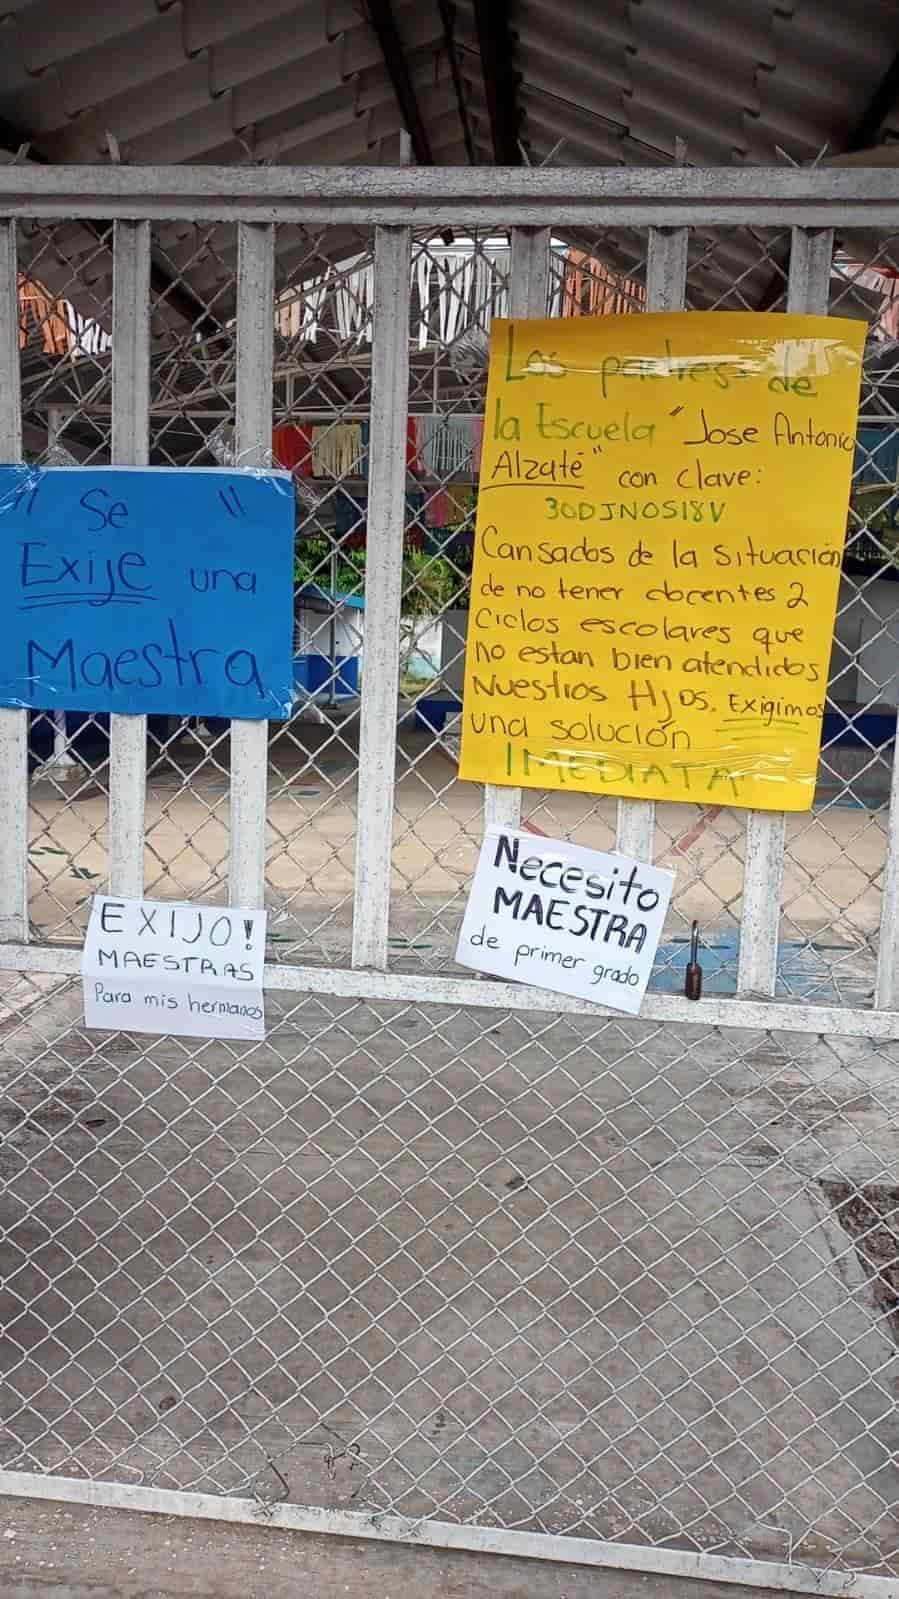 " Se "
Exije una
Maestra
Los padres de
la Escuela "Jose Antonio
Alzate" con clave:
30DJN0518V
Cansados de la situación
de no tener docentes 2
Ciclos escolares que
no estan bien atendidos
Nuestros Hjos. Exigimos
una solución
IMEDIATA
EXIJO!
MAESTRAS
Para mis hermanos
Necesito
MAESTRA
de primer grado